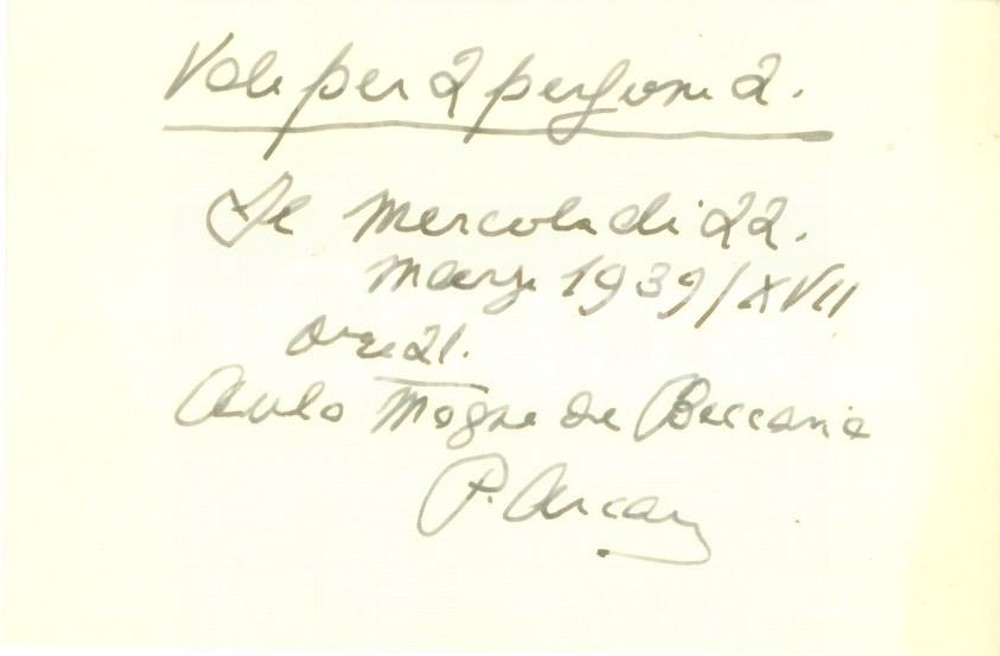 Vale per 2 persone 2.
Il mercoledì 22.
marzo 1939/XVII
ore 21.
Aula Magna del Beccaria
P. Arcari